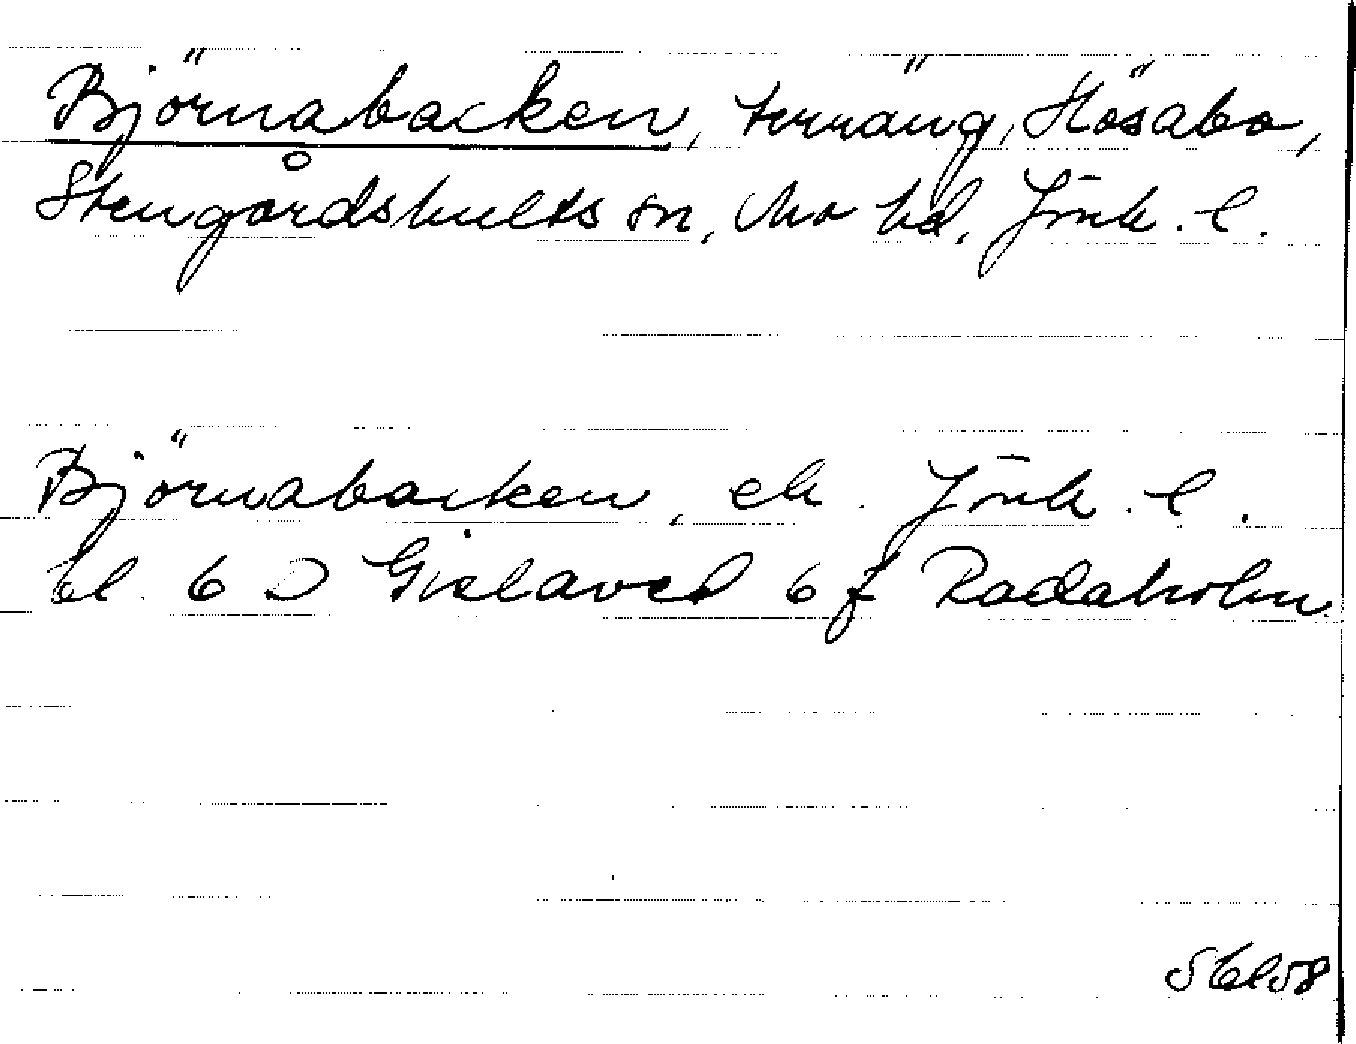 Björnabacken, terräng, Hösabo,
Stengårdshults sn, Mo hd, Jönk. l.
Björnabacken, ek. Jönk. l.
bl. 6 D Gislaved 6 f Radaholm
Sbl58